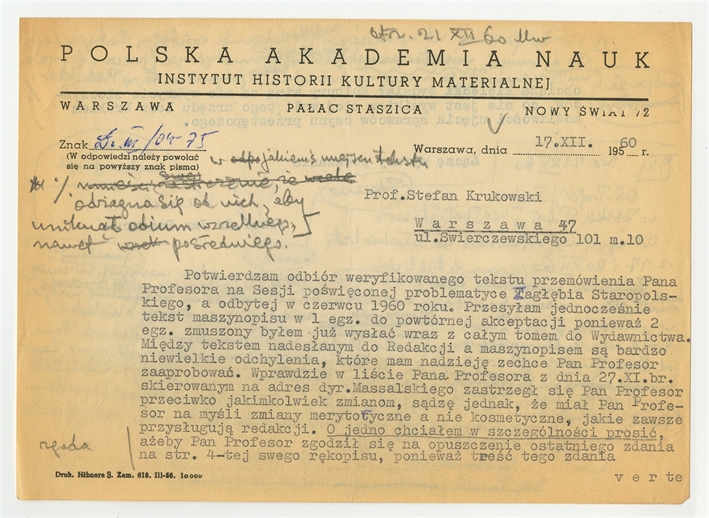 otrz. 21 XII 60
POLSKA AKADEMIA NAUK
INSTYTUT HISTORII KULTURY MATERIALNEJ
WARSZAWA PAŁAC STASZICA NOWY ŚWIAT 72
Znak
(W odpowiedzi należy powołać
się na powyższy znak pisma)
Warszawa, dnia 17.XII. 1950 60 r.
w miejscu tekstu
odżegna się od nich, aby
uniknąć odium wszelkiego,
nawet pośredniego.
Prof.Stefan Krukowski
Warszawa 47
ul.Świerczewskiego 101 m.10
Potwierdzam odbiór weryfikowanego tekstu przemówienia Pana
Profesora na Sesji poświęconej problematyce Zagłębia Staropols-
kiego, a odbytej w czerwcu 1960 roku. Przesyłam jednocześnie
tekst maszynopisu w 1 egz. do powtórnej akceptacji ponieważ 2
egz. zmuszony byłem już wysłać wraz z całym tomem do Wydawnictwa.
Między tekstem nadesłanym do Redakcji a maszynopisem są bardzo
niewielkie odchylenia, które mam nadzieję zechce Pan Profesor
zaaprobować. Wprawdzie w liście Pana Profesora z dnia 27.XI.br.
skierowanym na adres dyr.Massalskiego zastrzegł się Pan Profesor
przeciwko jakimkolwiek zmianom, sądzę jednak, że miał Pan Profe-
sor na myśli zmiany merytoryczne a nie kosmetyczne, jakie zawsze
przysługują redakcji. O jedno chciałem w szczególności prosić,
ażeby Pan Profesor zgodził się na opuszczenie ostatniego zdania
na str. 4-tej swego rękopisu, ponieważ treść tego zdania
zgoda
verte
Druk. Hibnera S. Zam. 618. III-56. 10000